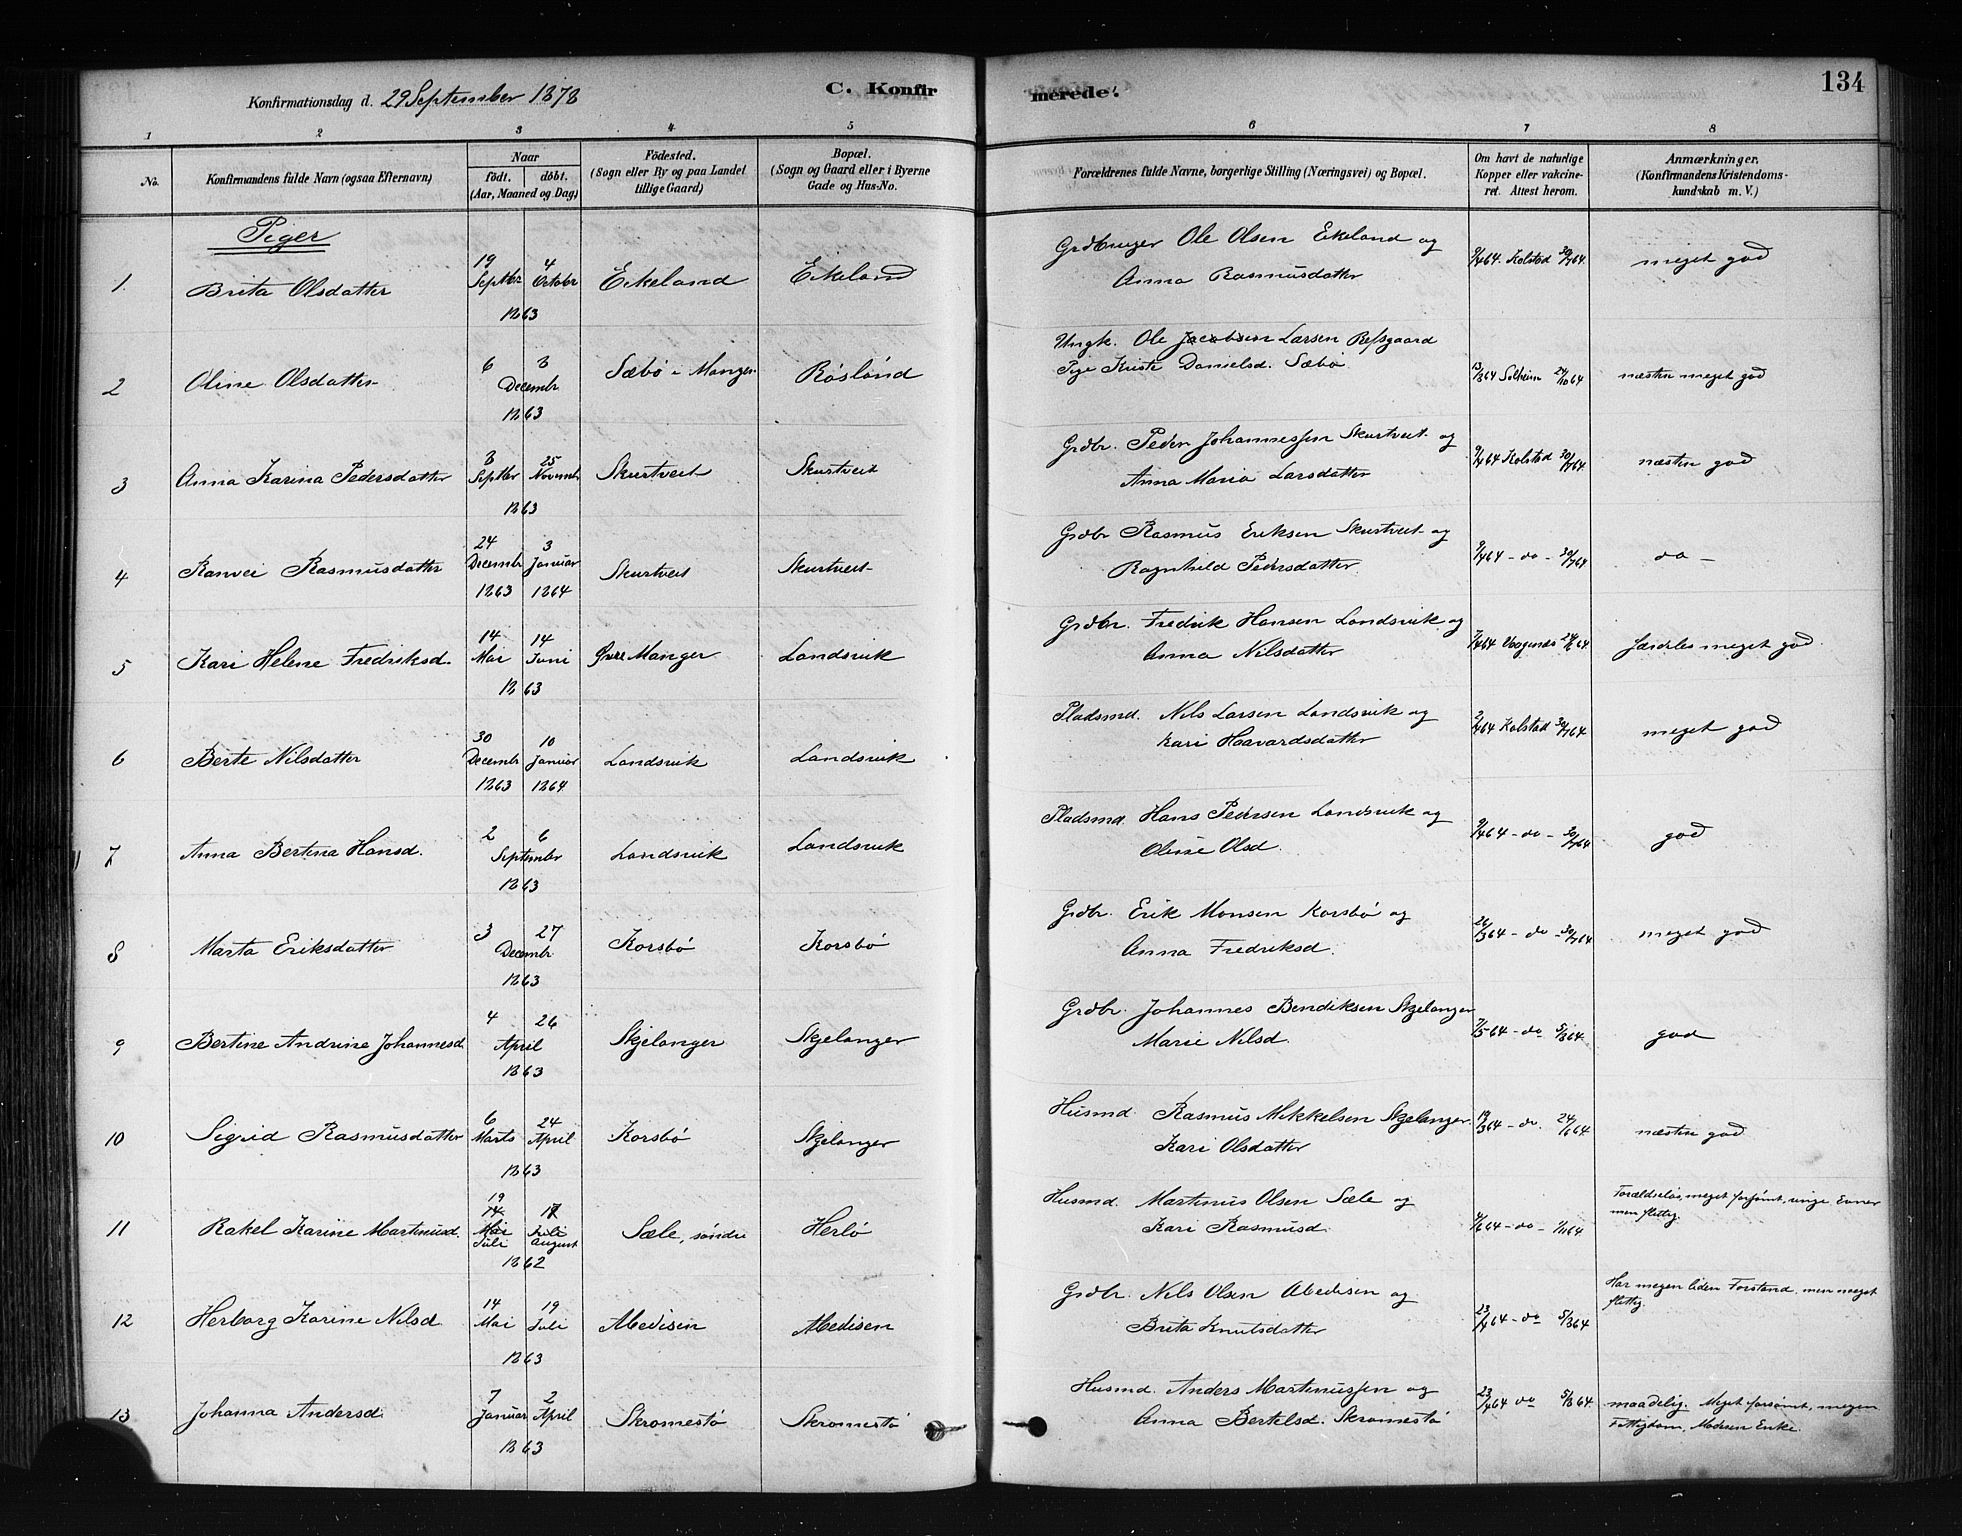 Konfirmationsdag d. 29 September 1878
C. Konfir
merede.
134
1 2 3 4 5 6 7 8
No.
Konfirmandens fulde Navn (ogsaa Efternavn)
Naar
födt. döbt.
(Aar, Maaned og Dag)
Födested.
(Sogn eller By og paa Landet
tillige Gaard)
Bopæl.
(Sogn og Gaard eller i Byerne
Gade og Hus-No.
Forældrenes fulde Navne, borgerlige Stilling (Næringsvei) og Bopæl.
Om havt de naturlige
Kopper eller vakcine-
ret. Attest herom.
Anmærkninger.
(Konfirmandens Kristendoms-
kundskab m. V.)
Piger
1. Brita Olsdatter 19 Septbr 4 October 1863 Eikeland Eikeland Grdbruger Ole Olsen Eikeland og
Anna Rasmusdatter 9/4 64. Kolstad 30/7 64. meget god
2 Oline Olsdatter 6 8 Decembr 1863 Sæbø i Manger Røsland Ungk. Ole Jacobsen Larsen Refsgaard
Pige Kriste Danielsd. Sæbø 13/3 64 Solheim 24/10 64 næsten meget god
3 Anna Karina Pedersdatter 8 Septbr 25 Novembr 1863 Skurtveit Skurtveit Grdbr. Peder Johannessen Skurtveit og
Anna Maria Larsdatter 9/4 64 Kolstad 30/7 64. næsten god
4 Ranvei Rasmusdatter 24 Decembr 1863 3 Januar 1864 Skurtveit Skurtveit Grdbr Rasmus Eriksen Skurtveit og
Ragnhild Pedersdatter 9/4 64 - do - 30/7 64 do -
5 Kari Helene Fredriksd. 14 Mai 14 Juni 1863 Øvre Manger Landsvik Grdbr. Fredrik Hansen Landsvik og
Anna Nilsdatter 7/4 64 Vaagenæs 24/6 64 særdeles meget god
6 Berte Nilsdatter 30 Decembr 1863 10 Januar 1864 Landsvik Landsvik Pladsmd. Nils Larsen Landsvik og
Kari Haavardsdatter 2/4 64 Kolstad 30/7 64 meget god
7 Anna Bertina Hansd. 2 6 September 1863 Landsvik Landsvik Pladsmd. Hans Pedersen Landsvik og
Oline Olsd. 9/4 64 - do - 30/7 64 god
8 Marta Eriksdatter 3 27 Decembr 1863 Korsbø Korsbø Grdbr. Erik Monsen Korsbø og
Anna Fredriksd. 26/3 64 - do - 30/7 64 meget god
9 Bertine Andrine Johannesd. 4 26 April 1863 Skjelanger Skjelanger Grdbr. Johannes Bendiksen Skjelanger
Marie Nilsd. 7/5 64 - do 5/8 64 god
10 Sigrid Rasmusdatter 6 Marts 24 April 1863 Korsbø Skjelanger Husmd. Rasmus Mikkelsen Skjelanger
Kari Olsdatter 19/3 64 - do. 24/6 64 næsten god
11 Rakel Karine Martinusd. 19 14 Mai Juli 17 Juli August 1862 Sæle, søndre Herlø Husmd. Martinus Olsen Sæle og
Kari Rasmusd. 4/6 64 - do - 1/11 64 Forældreløs, meget forsømt, ringe Evner
men flittig.
12 Herborg Karine Nilsd. 14 Mai 19 Juli 1863 Abedisen Abedisen Grdbr. Nils Olsen Abedisen og
Brita Knutsdatter 23/4 64 - do 5/8 64 Har megen liden Forstand, men meget
flittig.
13 Johanna Andersd. 7 Januar 2 April 1863 Skromestø Skromestø Husmd. Anders Martinussen og
Anna Bertelsd. Skromestø 23/4 64 do 5/8 64 maadelig. Meget forsømt, megen
Fattigdom, Moderen Enke.